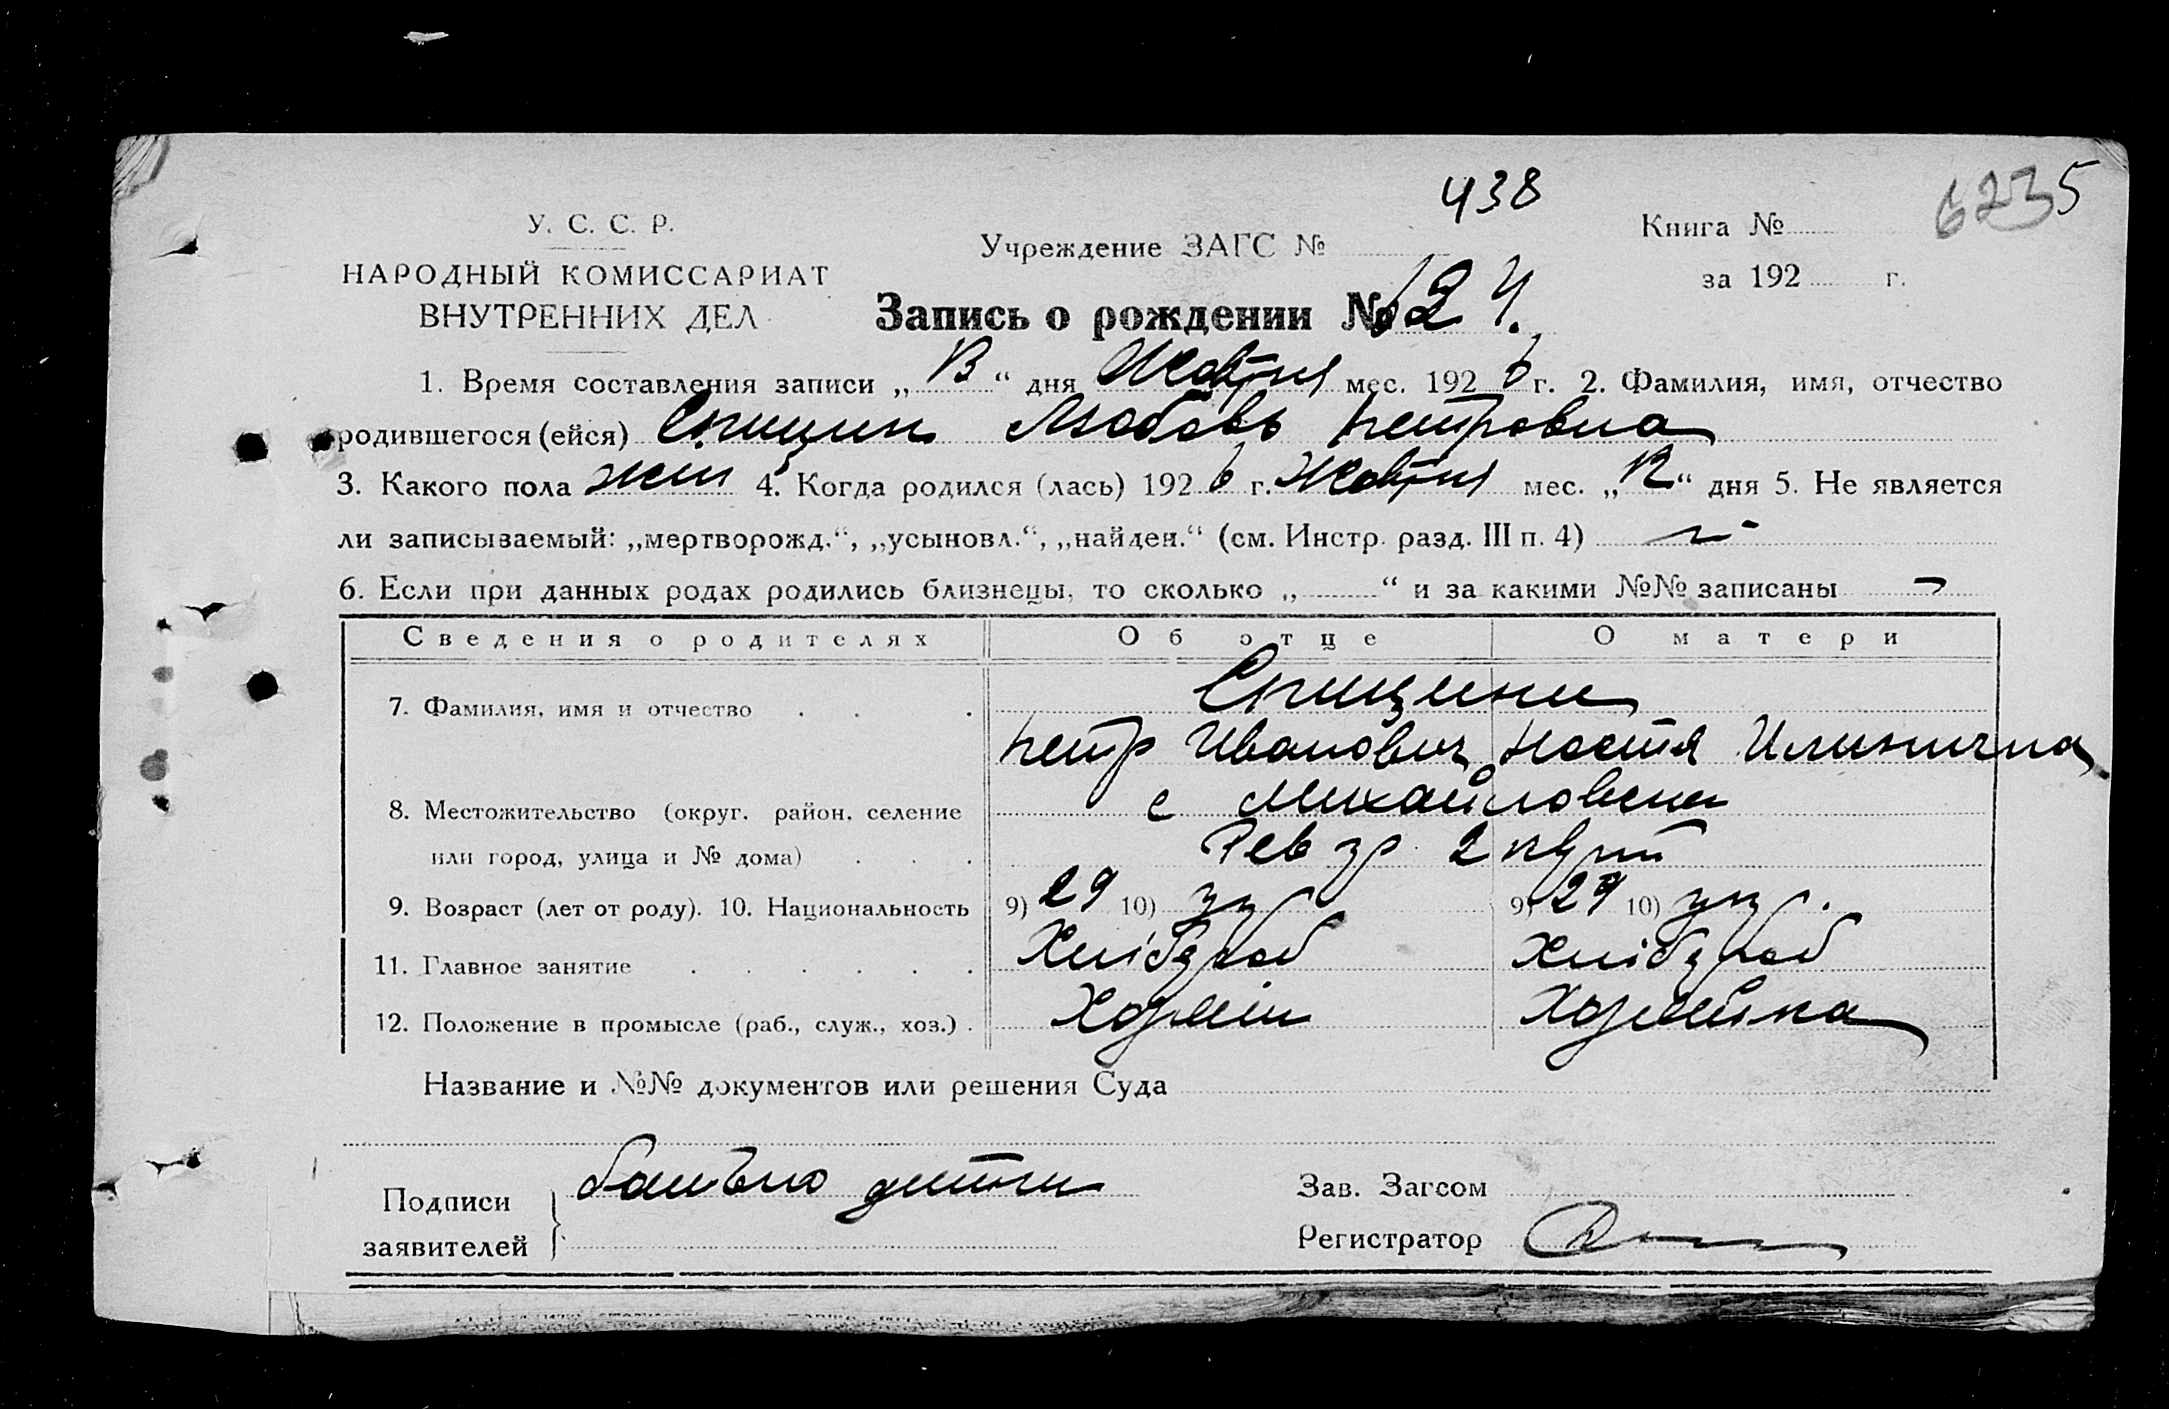 438
6235
У. С. С. Р.
НАРОДНЫЙ КОМИССАРИАТ
ВНУТРЕННИХ ДЕЛ
Учреждение ЗАГС №
Книга №
за 192 г.
Запись о рождении № 624.
1. Время составления записи „ 13 “ дня Жовтня мес. 192 6 г. 2. Фамилия, имя, отчество
родившегося (ейся) Спицин Любовь Петровна
3. Какого пола жін 4. Когда родился (лась) 192 6 г. Жовтня мес. „ 12 “ дня 5. Не является
ли записываемый: „мертворожд.“, „усыновл.“, „найден.“ (см. Инстр. разд. III п. 4)
6. Если при данных родах родились близнецы, то сколько „ “ и за какими №№ записаны
Сведения о родителях Об отце О матери
7. Фамилия, имя и отчество Спицини
Петр Иванович Настя Илинична
8. Местожительство (округ, район, селение с Михайловска
или город, улица и № дома) Рев 2
9. Возраст (лет от роду). 10. Национальность 9) 29 10) 9) 29 10)
11. Главное занятие Хлібороб Хлібороб
12. Положение в промысле (раб., служ., хоз.) Хозяїн Хозяйка
Название и №№ документов или решения Суда
Подписи
заявителей
батько дитини
Зав. Загсом
Регистратор